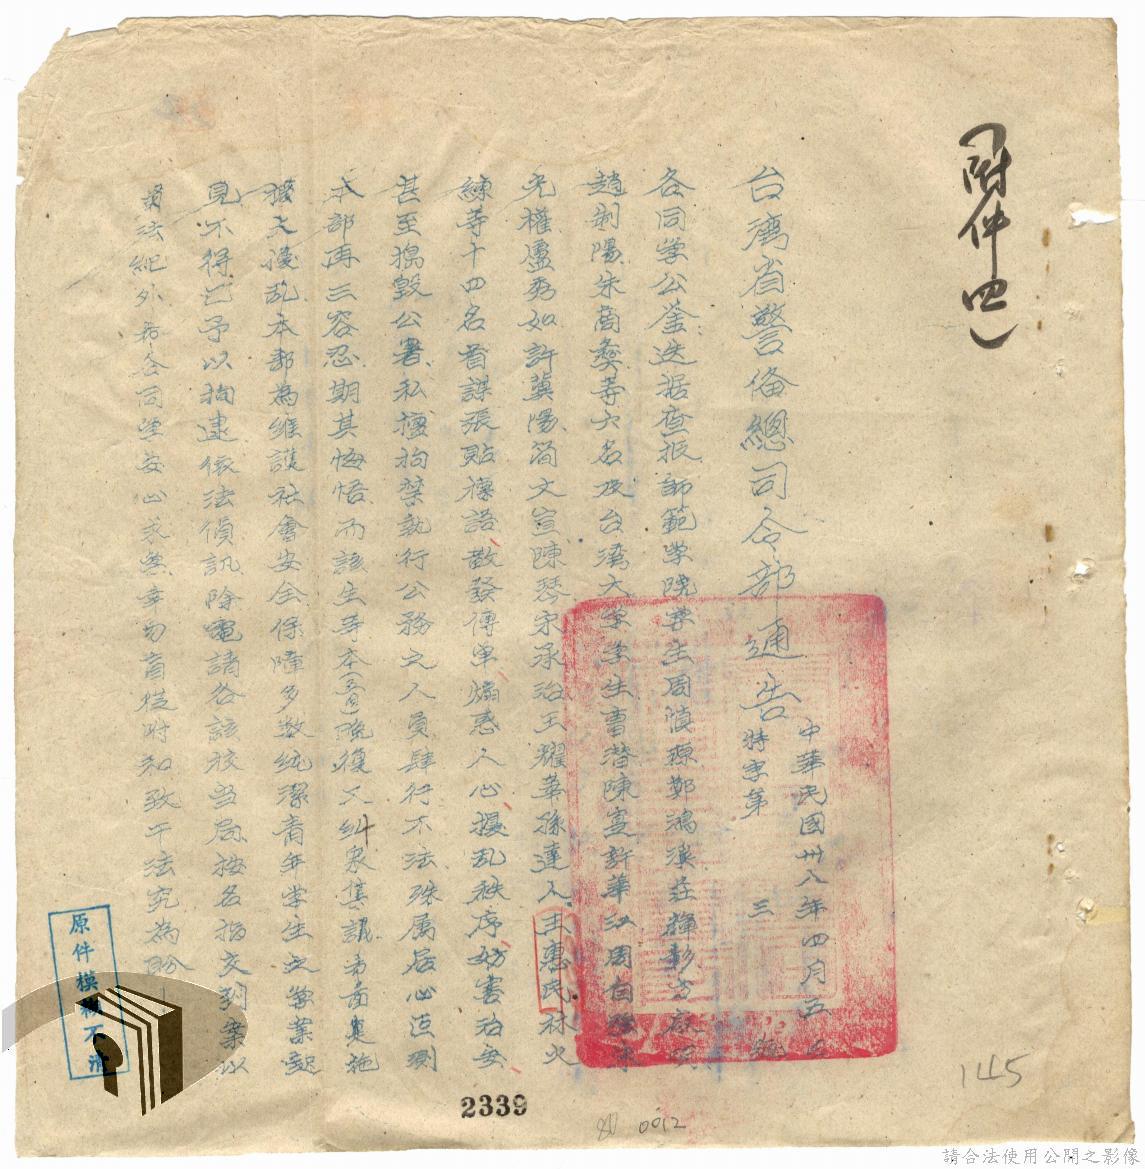 (附件四)
台湾省警俻總司令部通告
中華民國卅八年四月五日
特字第 三 號
各同学公鉴迭据查报師範学院学生周慎源鄭鴻溪莊輝彰方啟明
趙制陽朱商彝等六名及台湾大学学生曹潜陳實許華江周自強朱
光權盧秀如許冀湯簡文宣陳琴宋承治王耀華孫達人王惠民林火
練等十四名首謀張貼標語散發傳单煽惑人心擾乱秩序妨害治安
甚至搗毀公署私擅拘禁執行公務之人員肆行不法殊属居心叵測
本部再三容忍期其悔悟而該生等本(五日)晚復又糾衆集議希啚實施
擴大擾乱本部為維護社會安全保障多数純潔青年学生之學業起
見不得已予以拘逮依法偵訊除電請各該校当局按名指交到案以
肅法紀外希各同学安心求学幸勿盲從附和致干法究為盼
原件模糊不清
2339
0012
145
請合法使用公開之影像